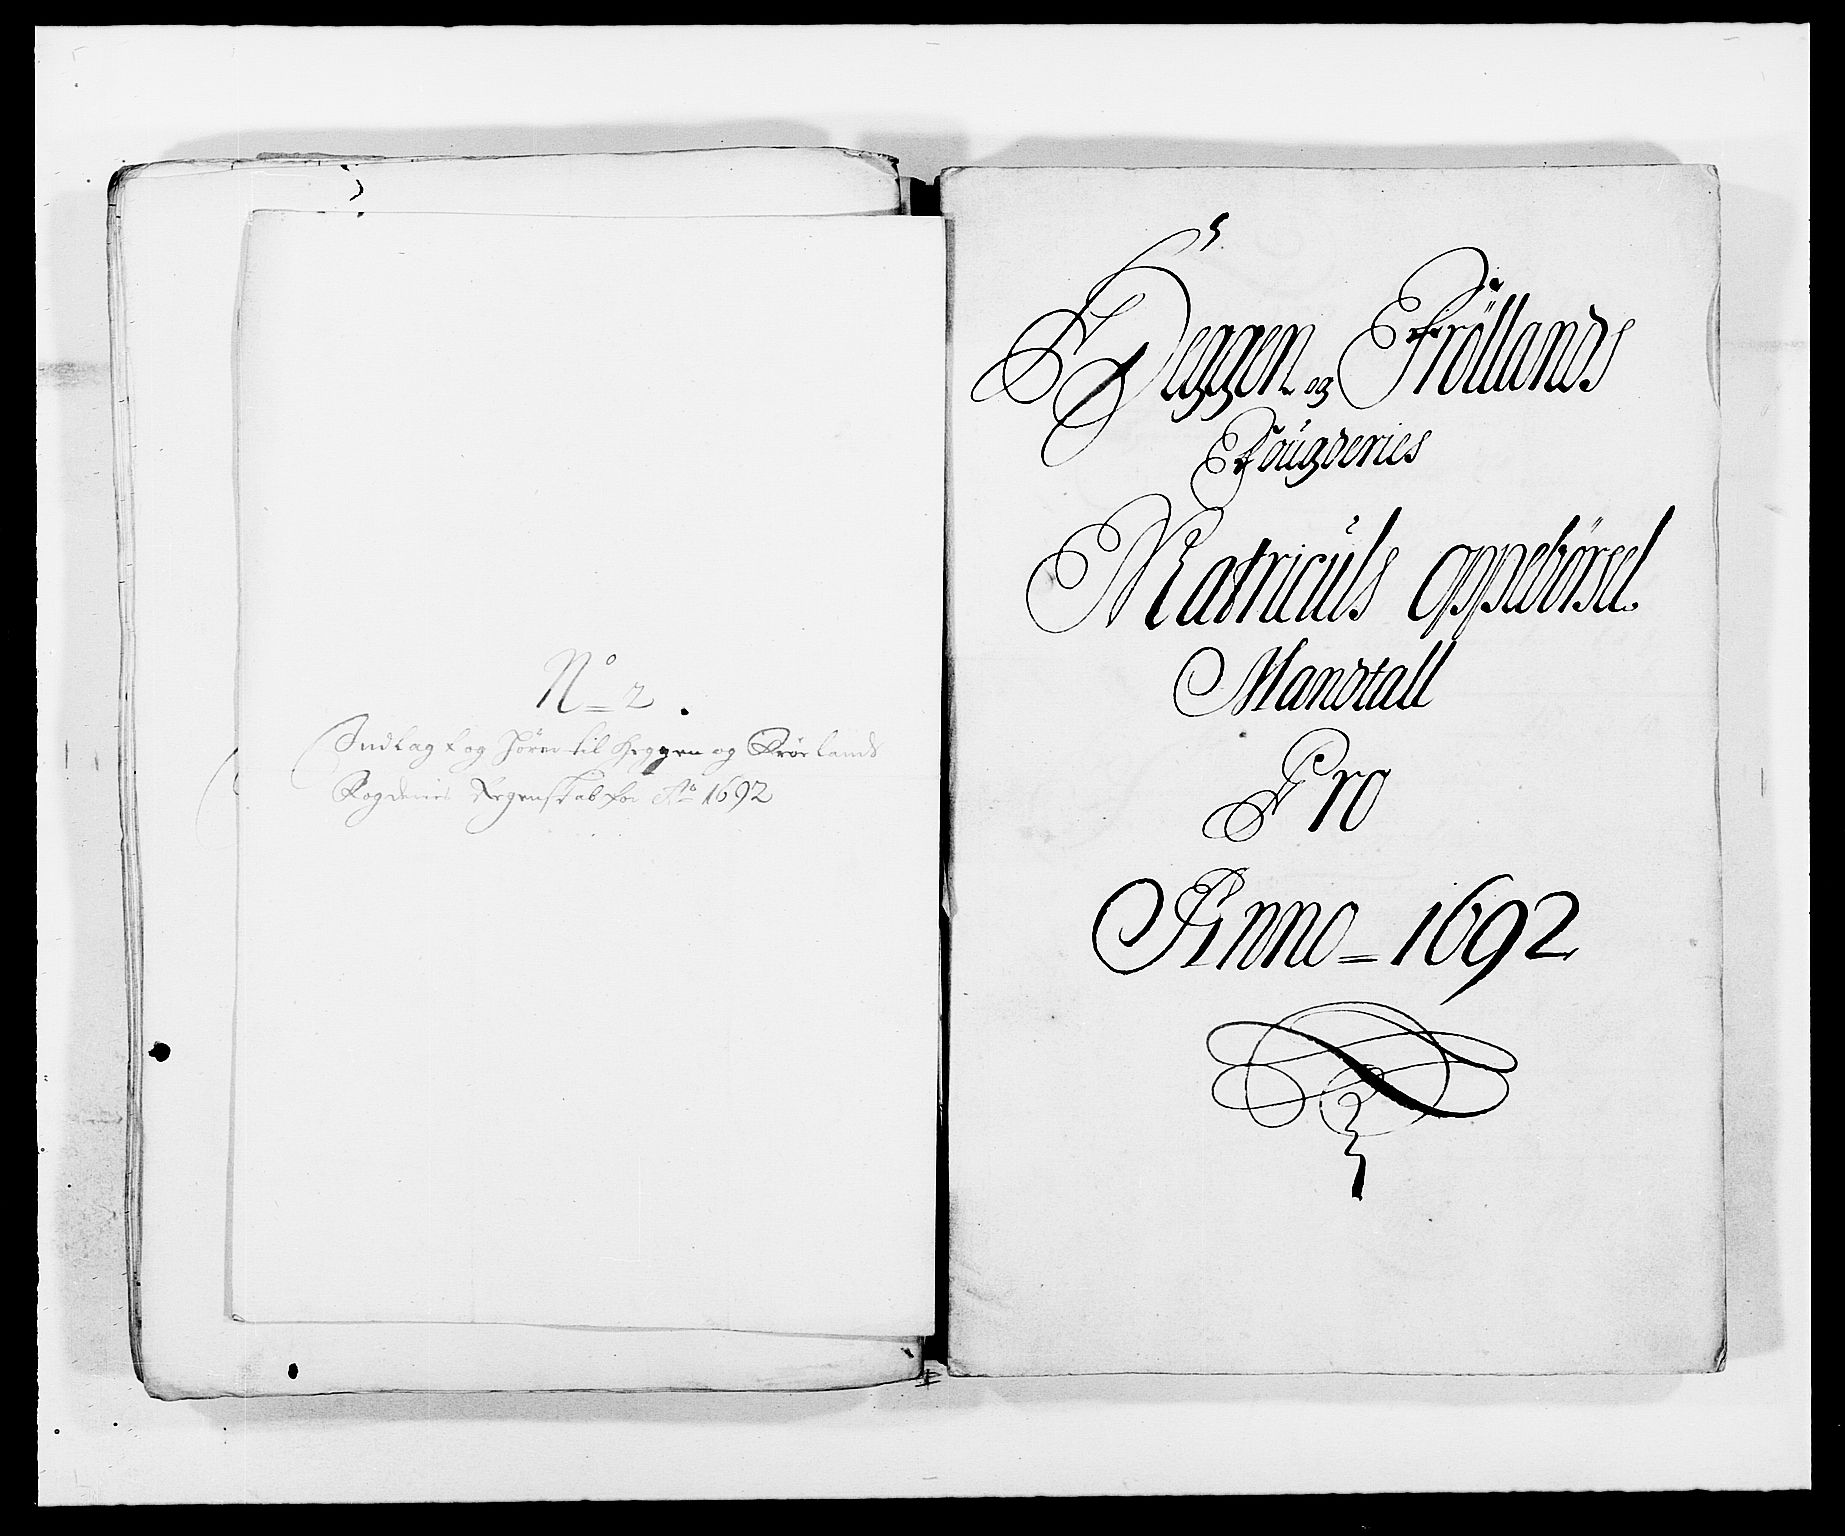 No 2.
Indlagt og hører til Heggen og Frøelands
Fogderies Regenskab for Ao 1692
Heggen og Fröllands
Fougderies
Matriculs oppebørsel.
Mandtall
Pro
Anno = 1692